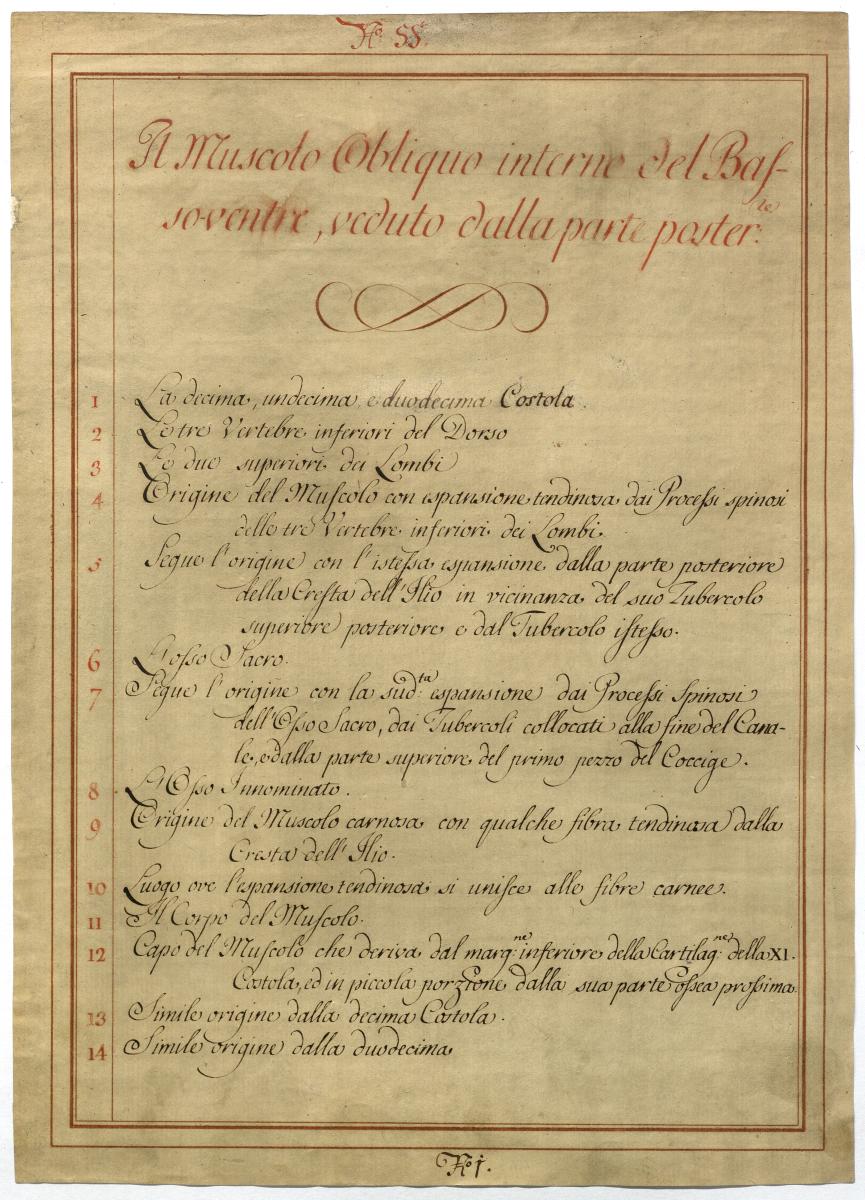 No. 55.
Il Muscolo Obliquo interno del Baſ-
so-ventre, veduto dalla parte poster:te
1 La decima, undecima, e duodecima Costola.
2 Le tre Vertebre inferiori del Dorso
3 Le due superiori dei Lombi
4 Origine del Muſcolo con espansione tendinosa dai Proceſsi spinosi
delle tre Vertebre inferiori dei Lombi.
5 Segue l'origine con l'isteſsa espansione dalla parte posteriore
della Creſta dell'Ilio in vicinanza del suo Tubercolo
superiore posteriore e dal Tubercolo iſtesso.
6 L'oſso Sacro.
7 Segue l'origine con la sud:ta espansione dai Proceſsi Spinosi
dell'Oſso Sacro, dai Tubercoli collocati alla fine del Cana-
le, e dalla parte superiore del primo pezzo del Coccige.
8 L'Oſso Innominato.
9 Origine del Muscolo carnosa con qualche fibra tendinosa dalla
Cresta dell'Ilio.
10 Luogo ove l'espansione tendinosa si uniſce alle fibre carnee.
11 Il Corpo del Muſcolo.
12 Capo del Muſcolo che deriva dal marg:ne inferiore della Cartilag:ne della XI.
Costola, ed in piccola porzione dalla sua parte oſsea proſsima.
13 Simile origine dalla decima Costola.
14 Simile origine dalla duodecima
No. j.